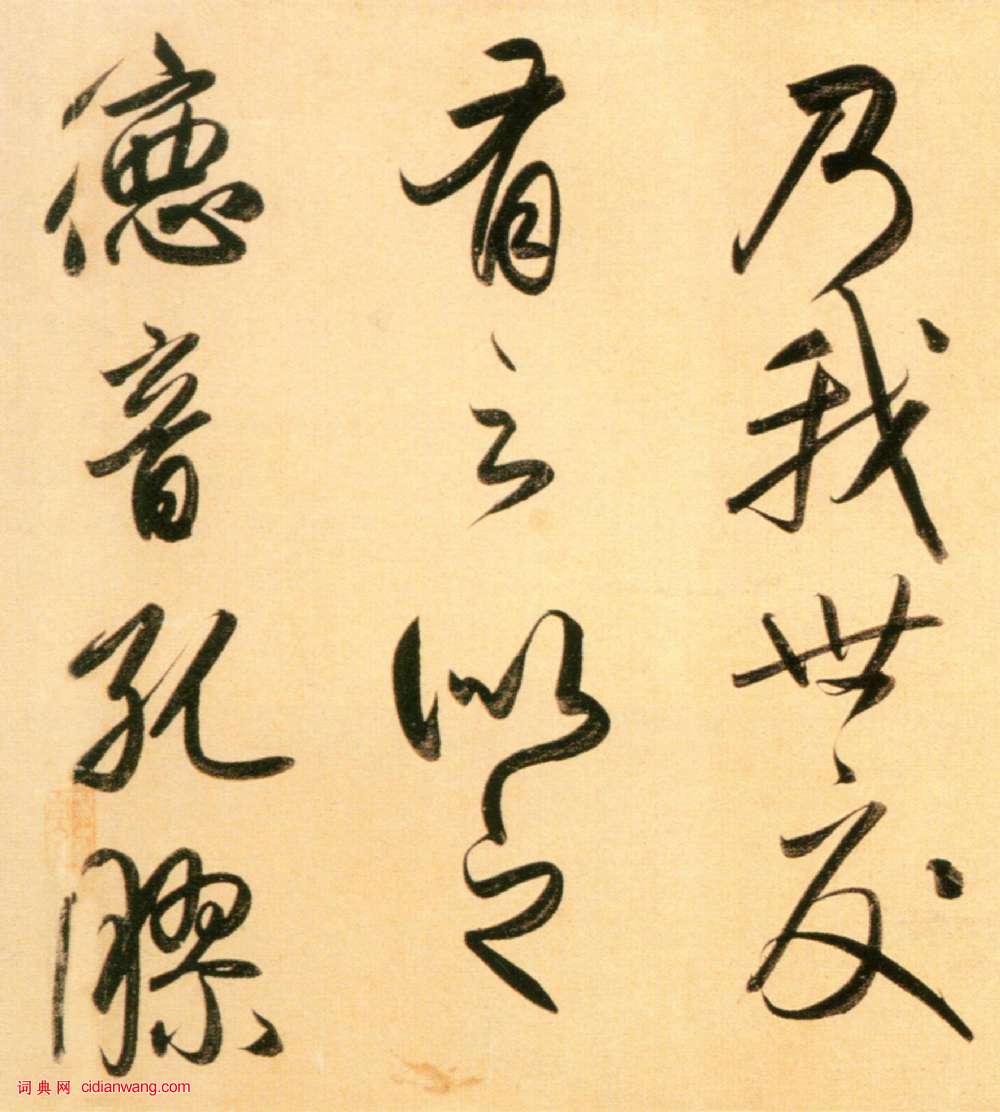 乃我世交
有之似之
德音孔膠
词典网 cidianwang.com